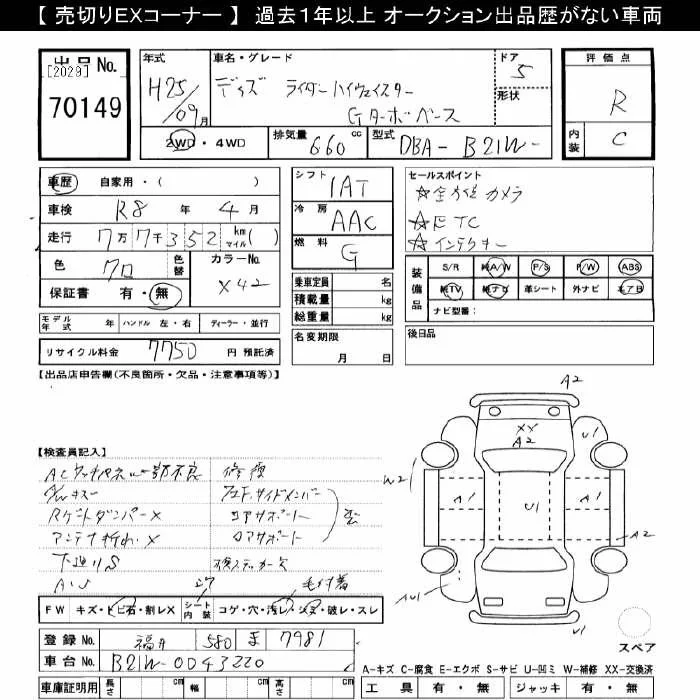 【 売切りEXコーナー 】 過去１年以上 オークション出品歴がない車両
出品 No.
[2029]
70149
年式
H25/09月
車名・グレード
デイズ ライダーハイウェイスター
Gターボベース
ドア
5
形状
2WD・4WD
排気量 660 cc
型式 DBA- B21W-
評価点
R
内装
C
車歴 自家用・( )
車検 R8 年 4 月
走行 7万7千352 km マイル ( )
色 クロ 色替
カラーNo. X42
保証書 有・無
モデル年式 年 ハンドル 左・右 ディーラー・並行
リサイクル料金 7750 円 預託済
シフト IAT
冷房 AAC
燃料 G
乗車定員 名
積載量 kg
総重量 kg
名変期限
月 日
セールスポイント
☆全方位カメラ
☆ETC
☆インテリキー
装備品
S/R 純A/W P/S P/W ABS
純TV 純ナビ 革シート 外ナビ エアB
ナビ型番：
後日品
【出品店申告欄(不良箇所・欠品・注意事項等)】
【検査員記入】
ACタッチパネル一部不良
A/Wキズ
Rゲートダンパー×
アンテナ折れ×
下廻りS
修復
コアサポート
ロアサポート
歪
FW キズ・トビ石・割レX
シート内装 コゲ・穴・汚レ・シミ・破レ・スレ
登録 No. 福井 580 ま 7981
車台 No. B21W-0043220
車庫証明用 長さ cm 幅 cm 高さ cm
A2
XX
A2
U1
W2
A1
U1
A1
A2
U1
スペア
A-キズ C-腐食 E-エクボ S-サビ U-凹ミ W-補修 XX-交換済
工具 有・無 ジャッキ 有・無